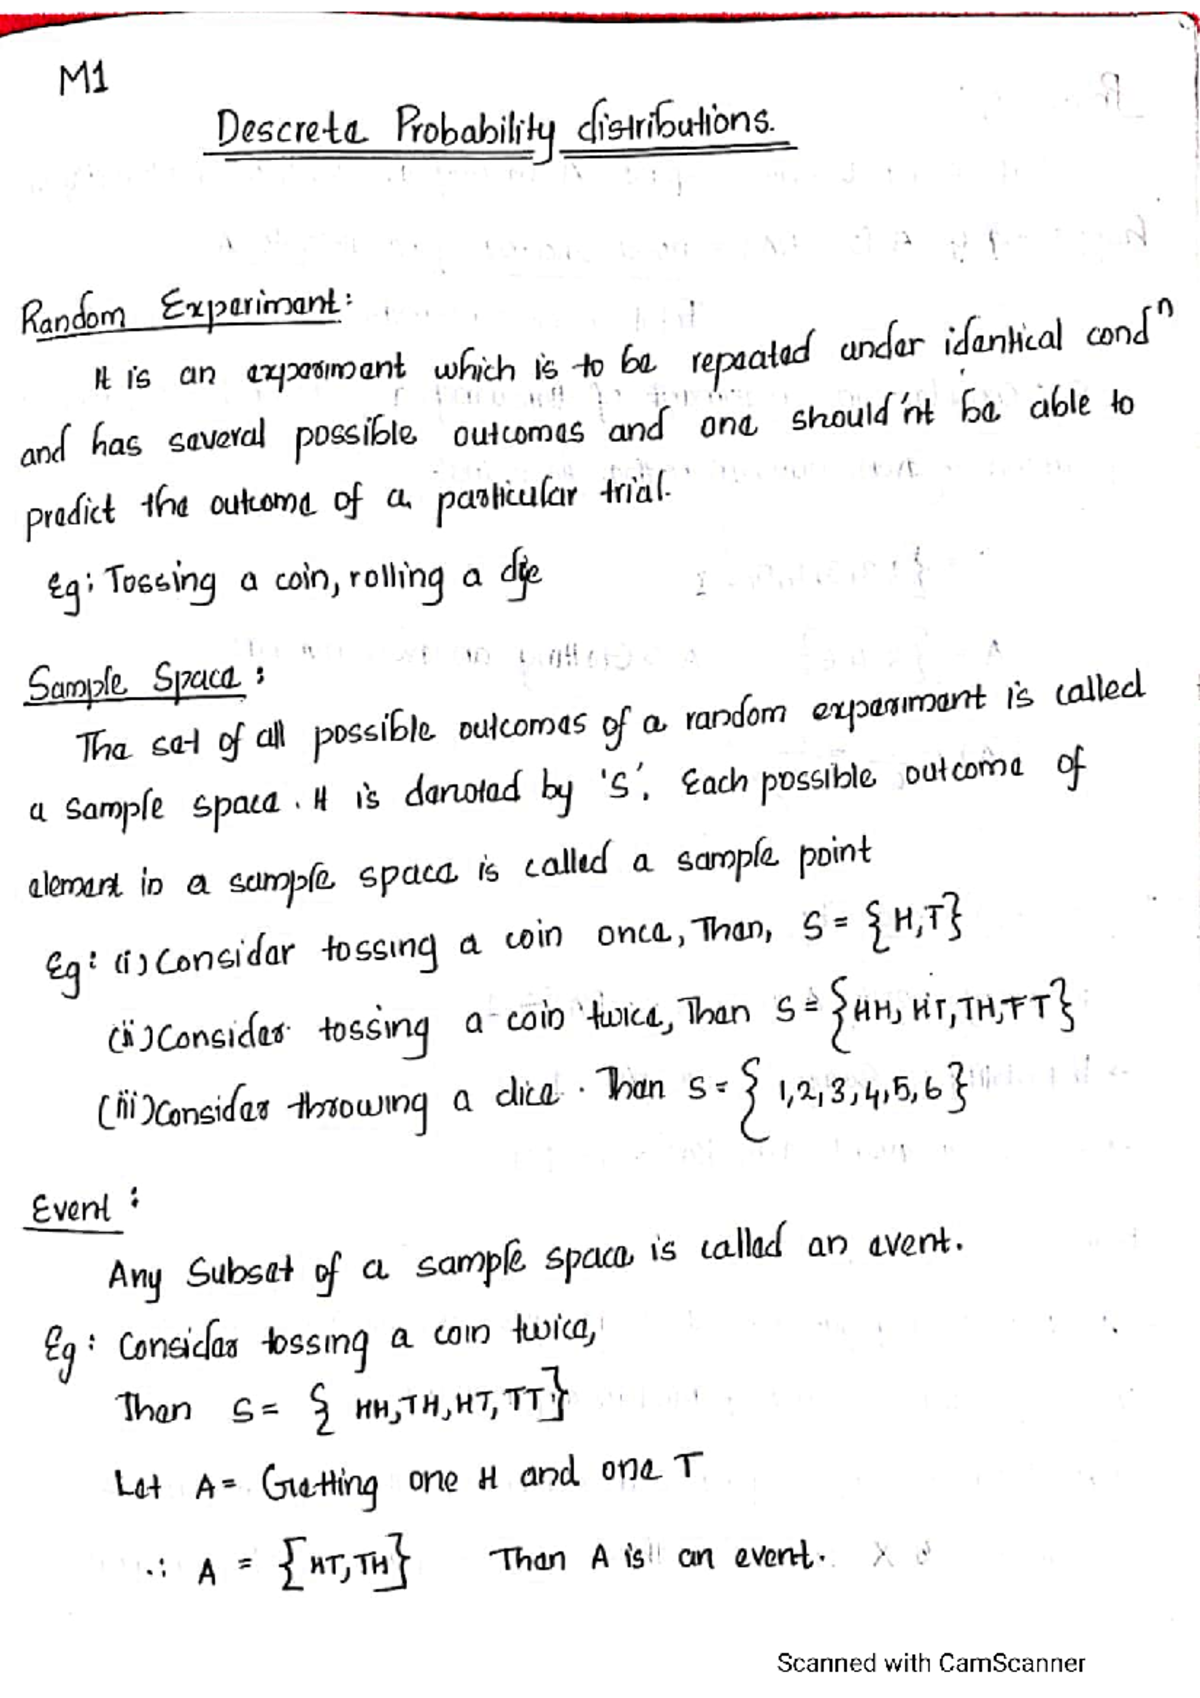 M1
Descrete Probability distributions.
Random Experiment:
It is an experiment which is to be repeated under identical condⁿ
and has several possible outcomes and one should'nt be able to
predict the outcome of a particular trial.
Eg: Tossing a coin, rolling a die
Sample Space:
The set of all possible outcomes of a random experiment is called
a sample space. It is denoted by 'S'. Each possible outcome of
element in a sample space is called a sample point
Eg: (i) Consider tossing a coin once, Then, S = {H,T}
(ii) Consider tossing a coin twice, Then S = {HH, HT, TH, TT}
(iii) Consider throwing a dice. Then S = {1,2,3,4,5,6}
Event:
Any Subset of a sample space is called an event.
Eg: Consider tossing a coin twice,
Then S = {HH, TH, HT, TT}
Let A = Getting one H and one T
∴ A = {HT, TH} Then A is an event.
Scanned with CamScanner